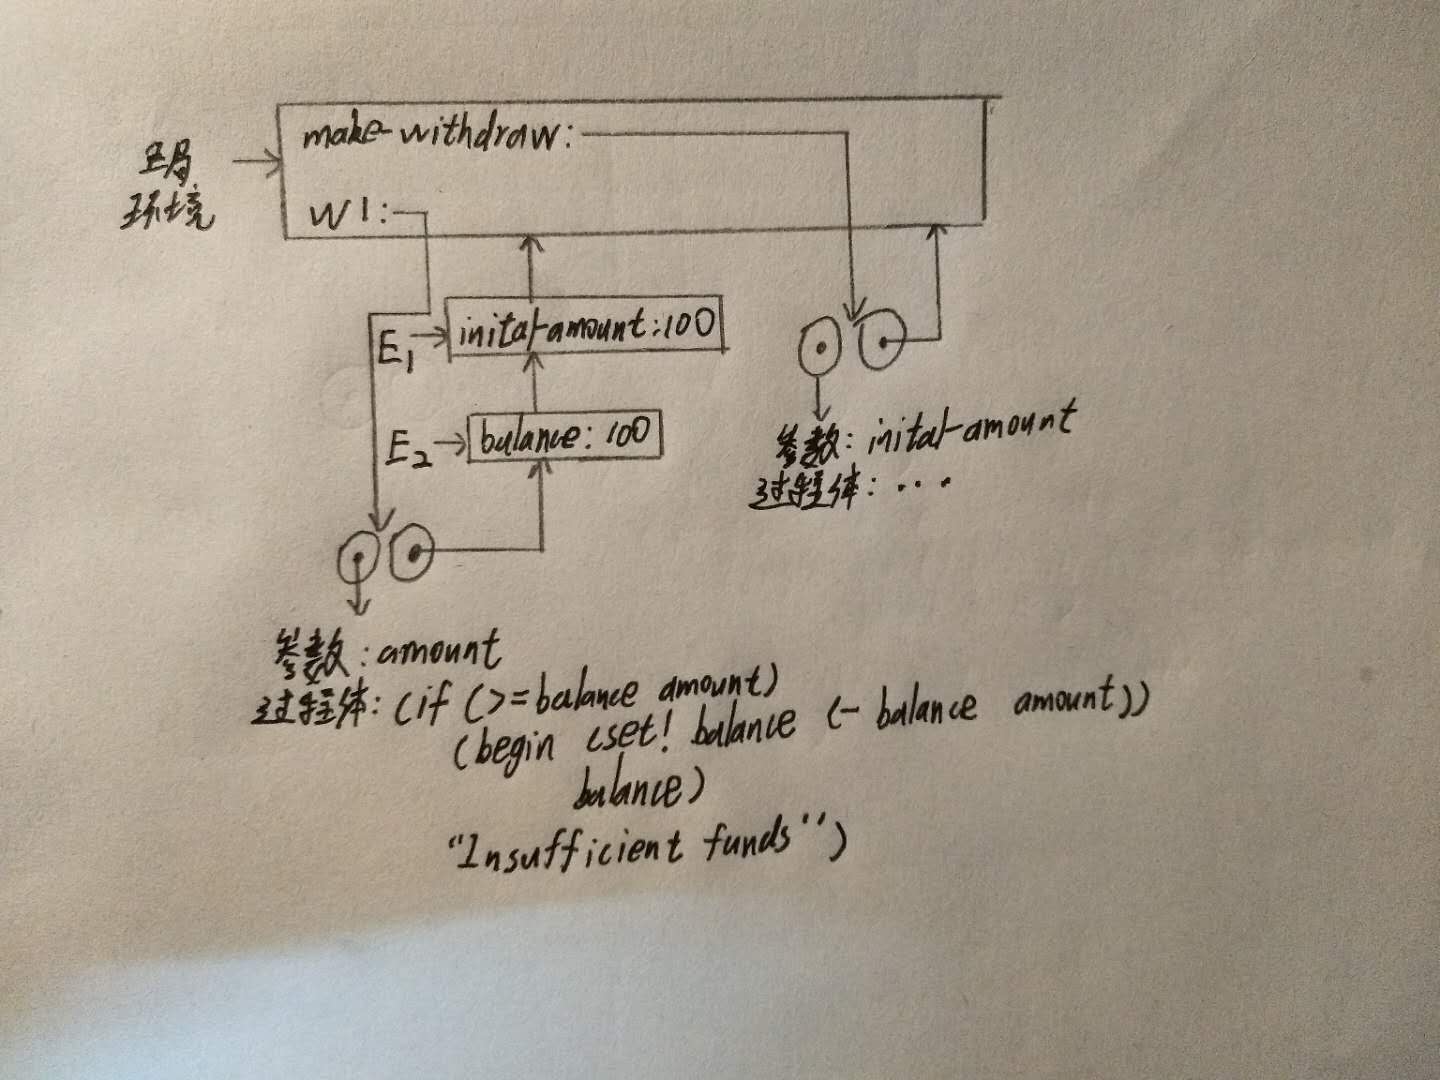 make-withdraw:
全局
环境
W1:
E1
inital-amount:100
E2
balance: 100
参数: inital-amount
过程体: ...
参数:amount
过程体: (if (>=balance amount)
(begin (set! balance (- balance amount))
balance)
"Insufficient funds")